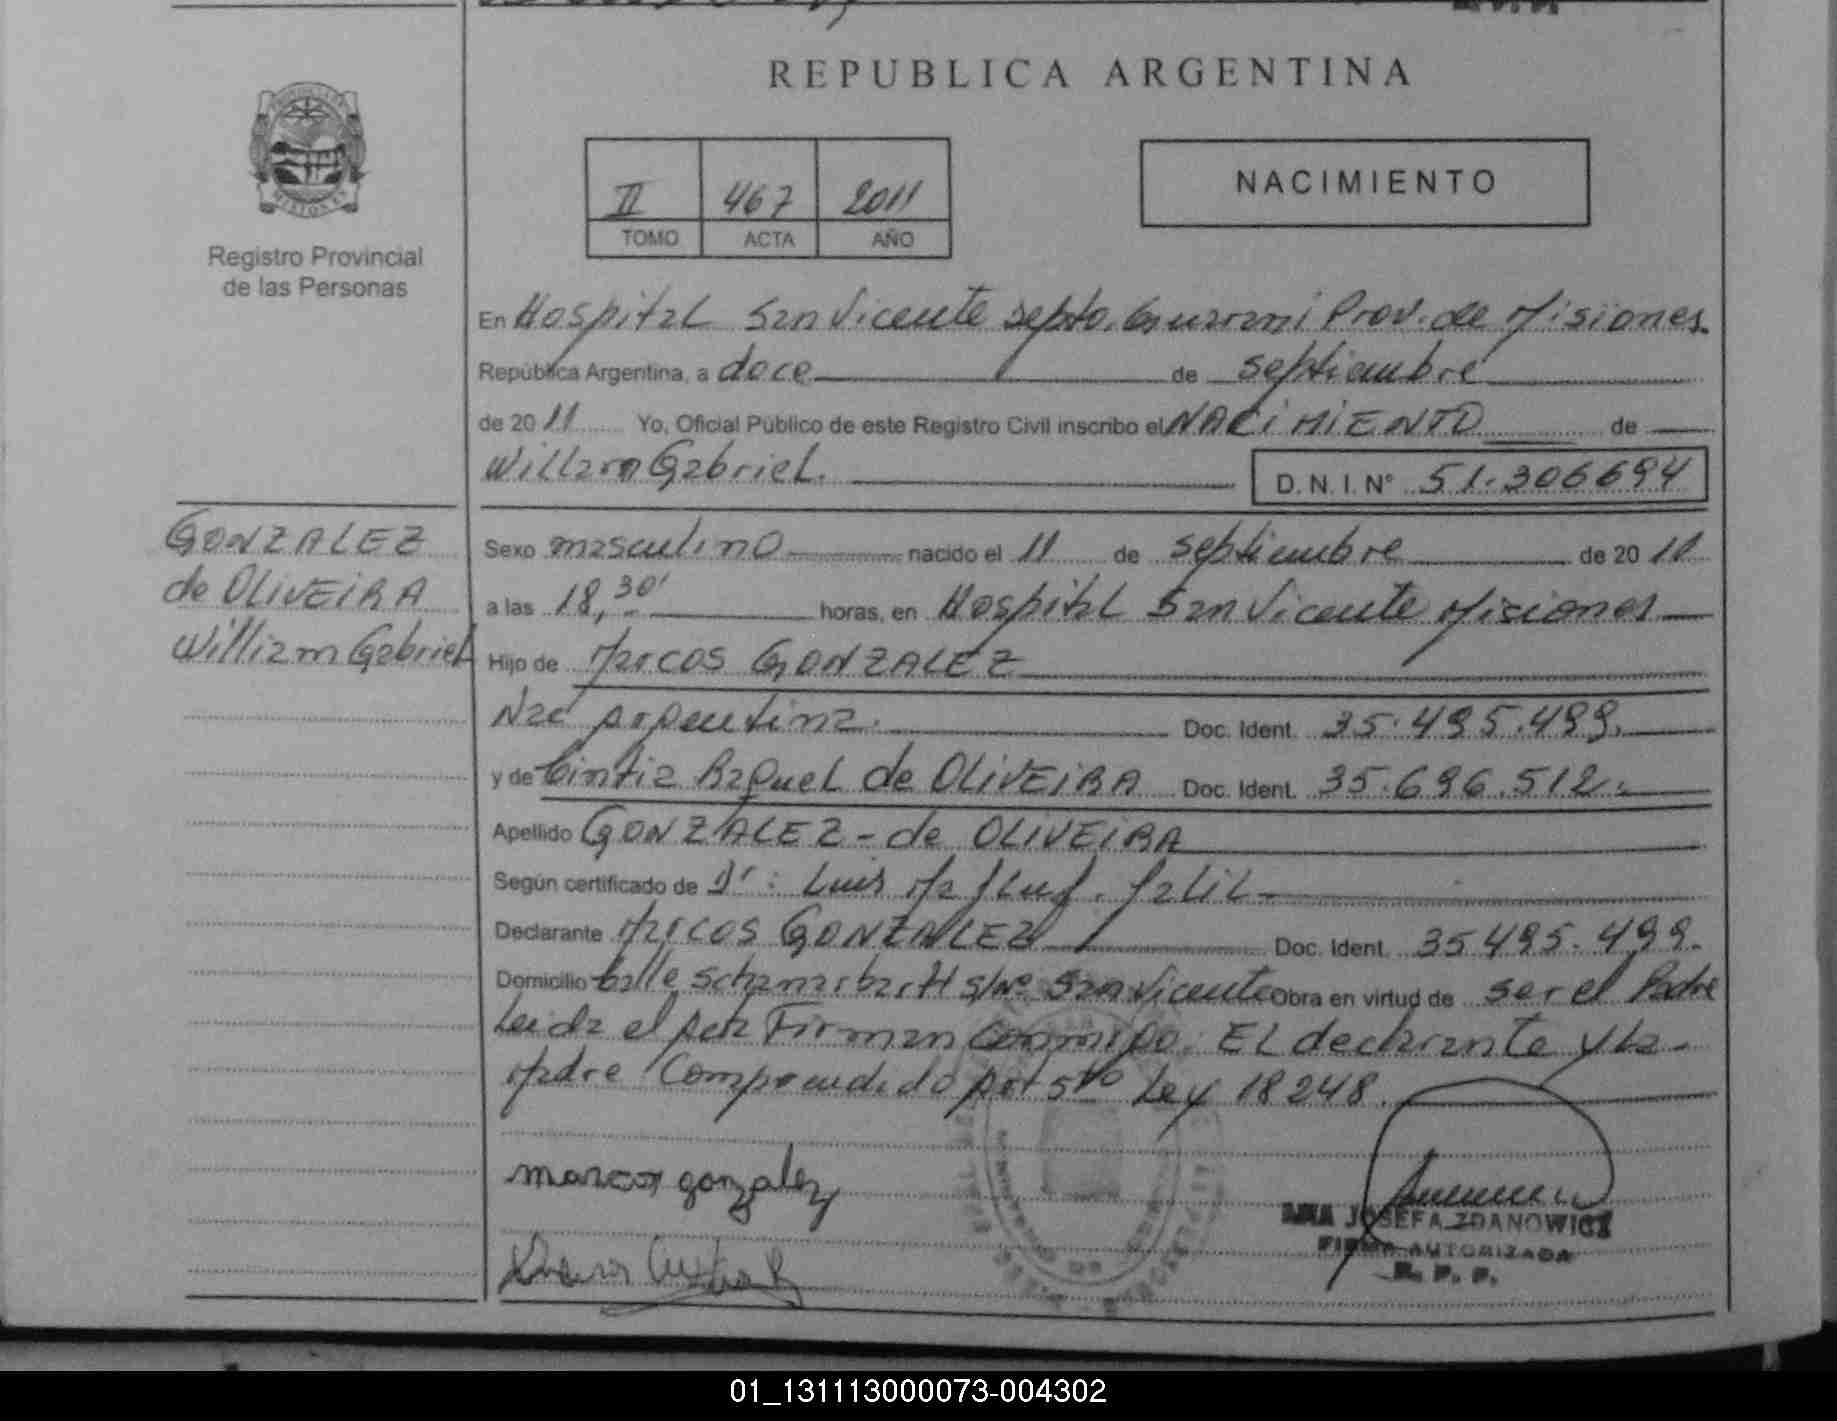 REPUBLICA ARGENTINA
Registro Provincial
de las Personas
II 467 2011
TOMO ACTA AÑO
NACIMIENTO
En Hospital San Vicente Depto. Guarani Prov. de Misiones.
República Argentina, a doce de septiembre
de 2011 Yo, Oficial Público de este Registro Civil inscribo el NACIMIENTO de
William Gabriel.
D.N.I. N° 51.306694
GONZALEZ
de OLIVEIRA
William Gabriel
Sexo masculino nacido el 11 de septiembre de 2011
a las 18,30' horas, en Hospital San Vicente Misiones
Hijo de Marcos GONZALEZ
Nac Argentina. Doc. Ident. 35.495.499.
y de Cintia Raquel de OLIVEIRA Doc. Ident. 35.696.512.
Apellido GONZALEZ - de OLIVEIRA
Según certificado de Dr: Luis
Declarante Marcos GONZALEZ Doc. Ident. 35495.499.
Domicilio Calle s/nº San Vicente Obra en virtud de ser el Padre
Leida el Acta Firman Conmigo. EL declarante y La
Madre Comprendido Art 5to Ley 18248.
marcos gonzalez
ANA JOSEFA ZDANOWICZ
FIRMA AUTORIZADA
R. P. P.
01_131113000073-004302